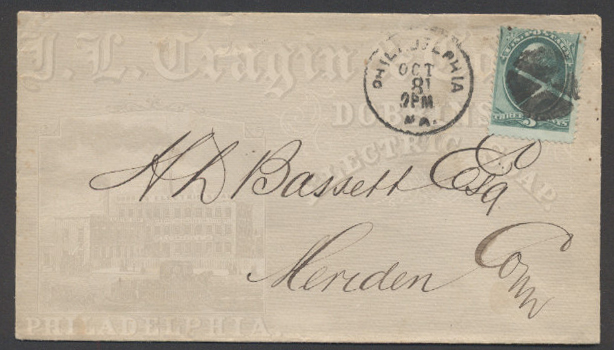 J. L. Cragin & Co.
PHILADELPHIA
OCT
8
7PM
PA.
THREE CENTS
DOBBINS
ELECTRIC SOAP
H L Bassett Esq
Meriden Conn
PHILADELPHIA.